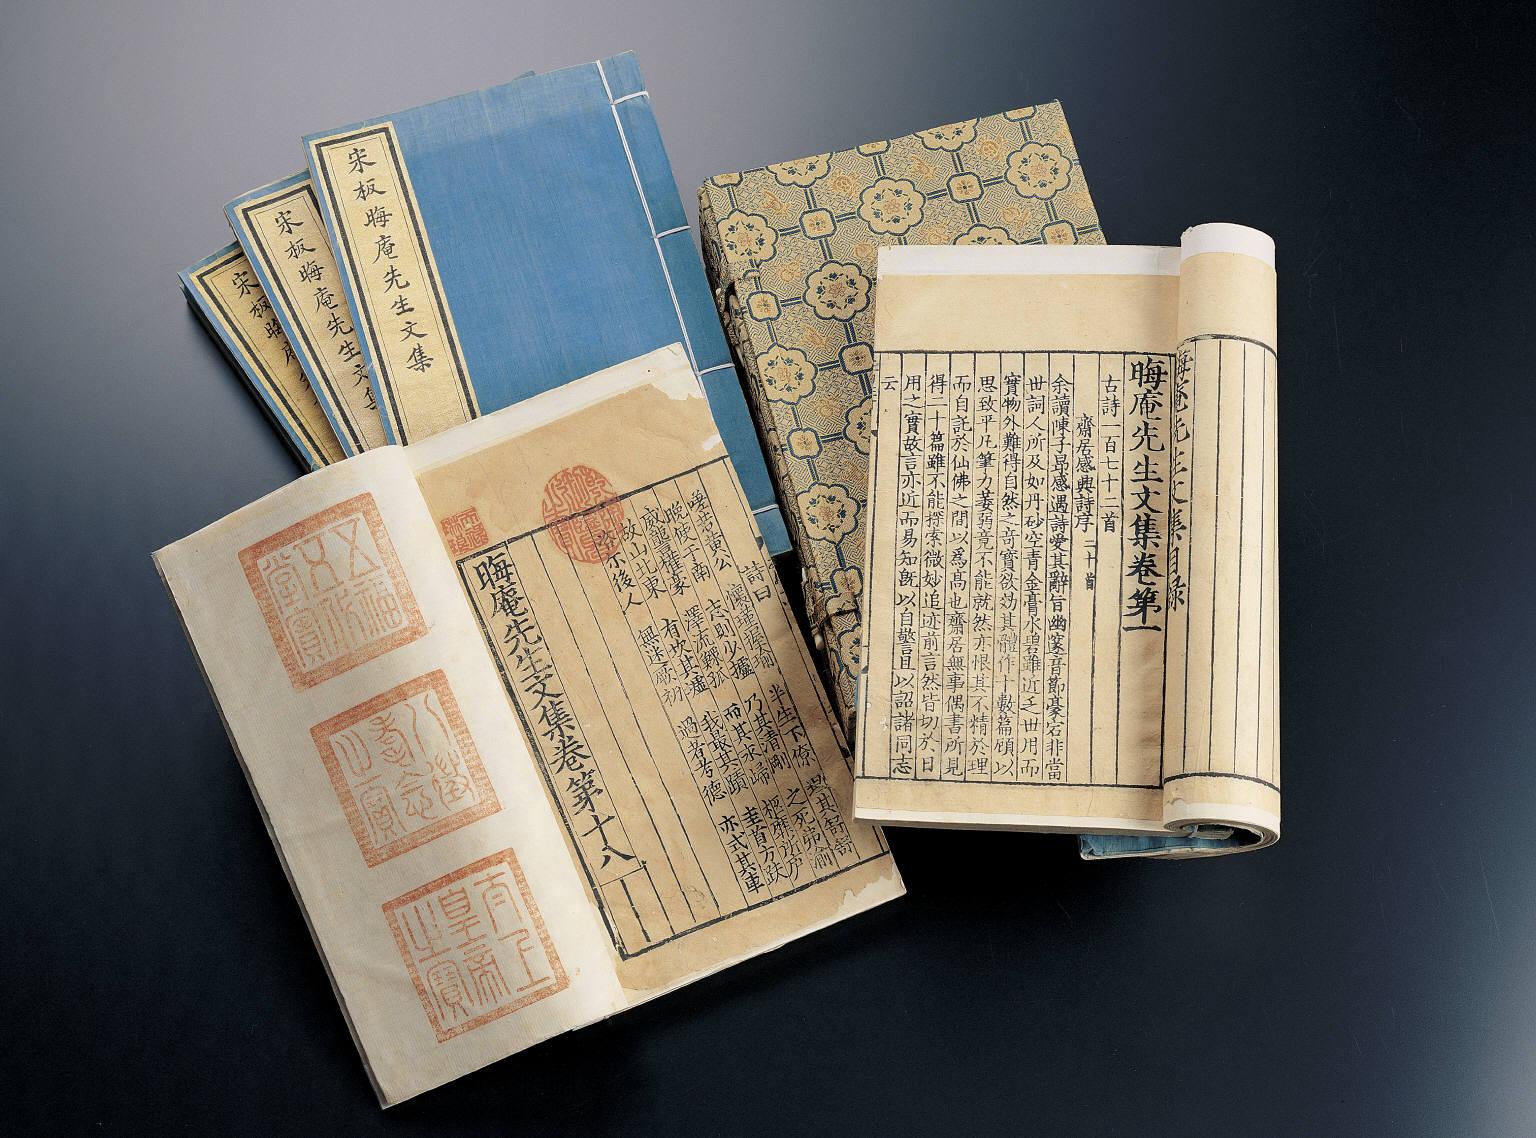 宋板晦庵先生文集
宋板晦庵先生
宋板晦庵
晦庵先生文集目録
晦庵先生文集卷第一
古詩一百七十二首
齋居感興詩序二十首
余讀陳子昂感遇詩愛其辭旨幽邃音節豪宕非當
世詞人所及如丹砂空青金膏水碧雖近乏世用而
實物外難得自然之奇寶欲効其體作十數篇顧以
思致平凡筆力萎弱竟不能就然亦恨其不精於理
而自託於仙佛之間以爲髙也齋居無事偶書所見
得二十篇雖不能探索微妙追迹前言然皆切於日
用之實故言亦近而易知旣以自警且以詔諸同志
云
詩曰
嗟若黃公 懷瑾握瑜 半生下僚
志則少攄 乃其清剛 之死弗渝
威龍擢豪 澤流鰥孤 而其水歸
故山北東 有坎其墟 我最其蹟 圭首方趺
後人 無迷厥初 過者考德 亦式其車
晦庵先生文集卷第十八
五福五代堂寶
八徵耄念之寶
太上皇帝之寶
乾隆御覽之寶